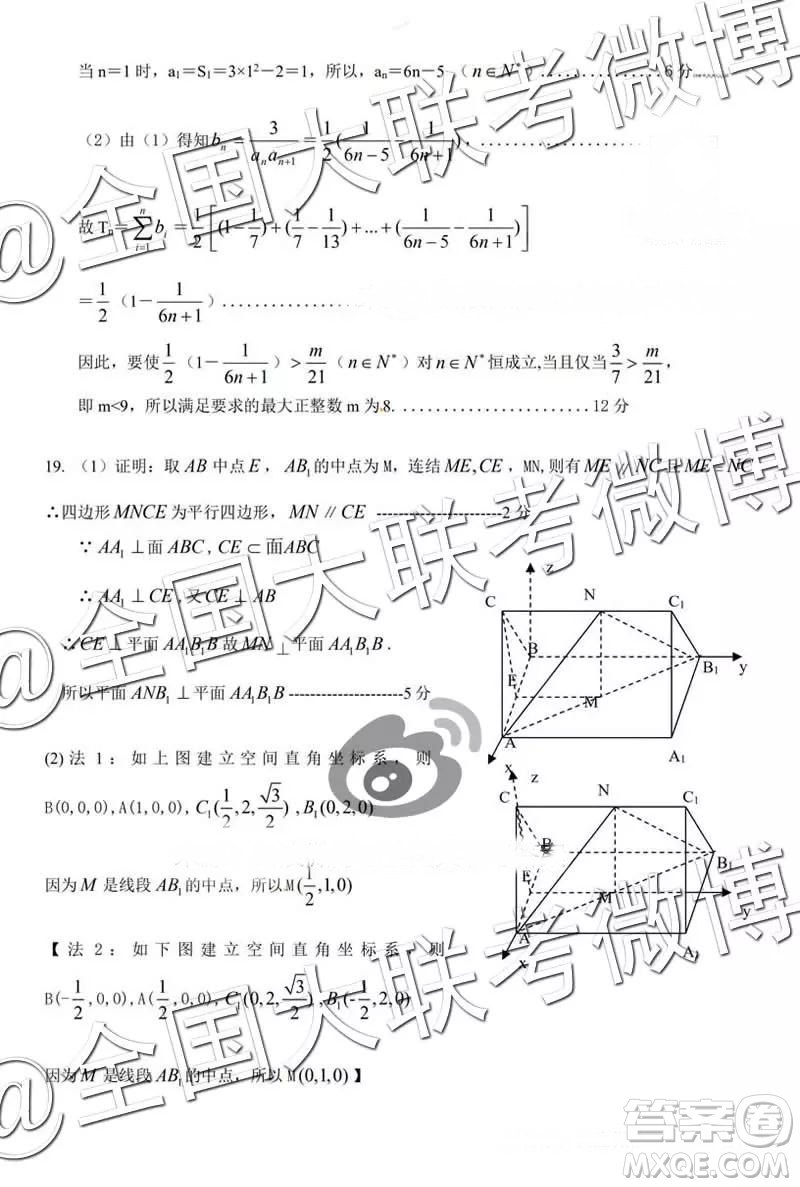 当 n=1 时, a₁=S₁=3×1²-2=1, 所以, aₙ=6n-5 (n∈N*) ...............6 分
(2) 由 (1) 得知 bₙ = 3/(aₙaₙ₊₁) = 1/2(1/(6n-5) - 1/(6n+1)), ...........................
故 Tₙ= ∑ᵢ₌₁ⁿ bᵢ = 1/2[(1-1/7)+(1/7-1/13)+...+(1/(6n-5)-1/(6n+1))]
=1/2 (1-1/(6n+1)) ........................
因此, 要使 1/2 (1-1/(6n+1)) > m/21 (n∈N*) 对 n∈N* 恒成立,当且仅当 3/7 > m/21,
即 m<9, 所以满足要求的最大正整数 m 为 8. ........................12 分
19. (1) 证明: 取 AB 中点 E, AB₁ 的中点为 M, 连结 ME,CE, MN,则有 ME∥NC 且 ME=NC
∴四边形 MNCE 为平行四边形, MN∥CE ------------------------2 分
∵ AA₁⊥面 ABC, CE⊂面ABC
∴ AA₁⊥CE, 又 CE⊥AB
∴CE⊥平面 AA₁B₁B 故 MN⊥平面 AA₁B₁B.
所以平面 ANB₁⊥平面 AA₁B₁B----------------------5 分
(2) 法 1: 如上图建立空间直角坐标系, 则
B(0,0,0),A(1,0,0),C₁(1/2,2,√3/2),B₁(0,2,0)
因为 M 是线段 AB₁ 的中点, 所以 M(1/2,1,0)
【法 2: 如下图建立空间直角坐标系, 则
B(-1/2,0,0),A(1/2,0,0),C₁(0,2,√3/2),B₁(-1/2,2,0)
因为 M 是线段 AB₁ 的中点, 所以 M(0,1,0)】
z
C
N
C₁
B
B₁
y
E
M
A
A₁
x
z
C
N
C₁
B
B₁
E
M
y
A
A₁
x
@全国大联考微博
@全国大联考微博
@全国大联考微博
答案卷
MXQE.COM